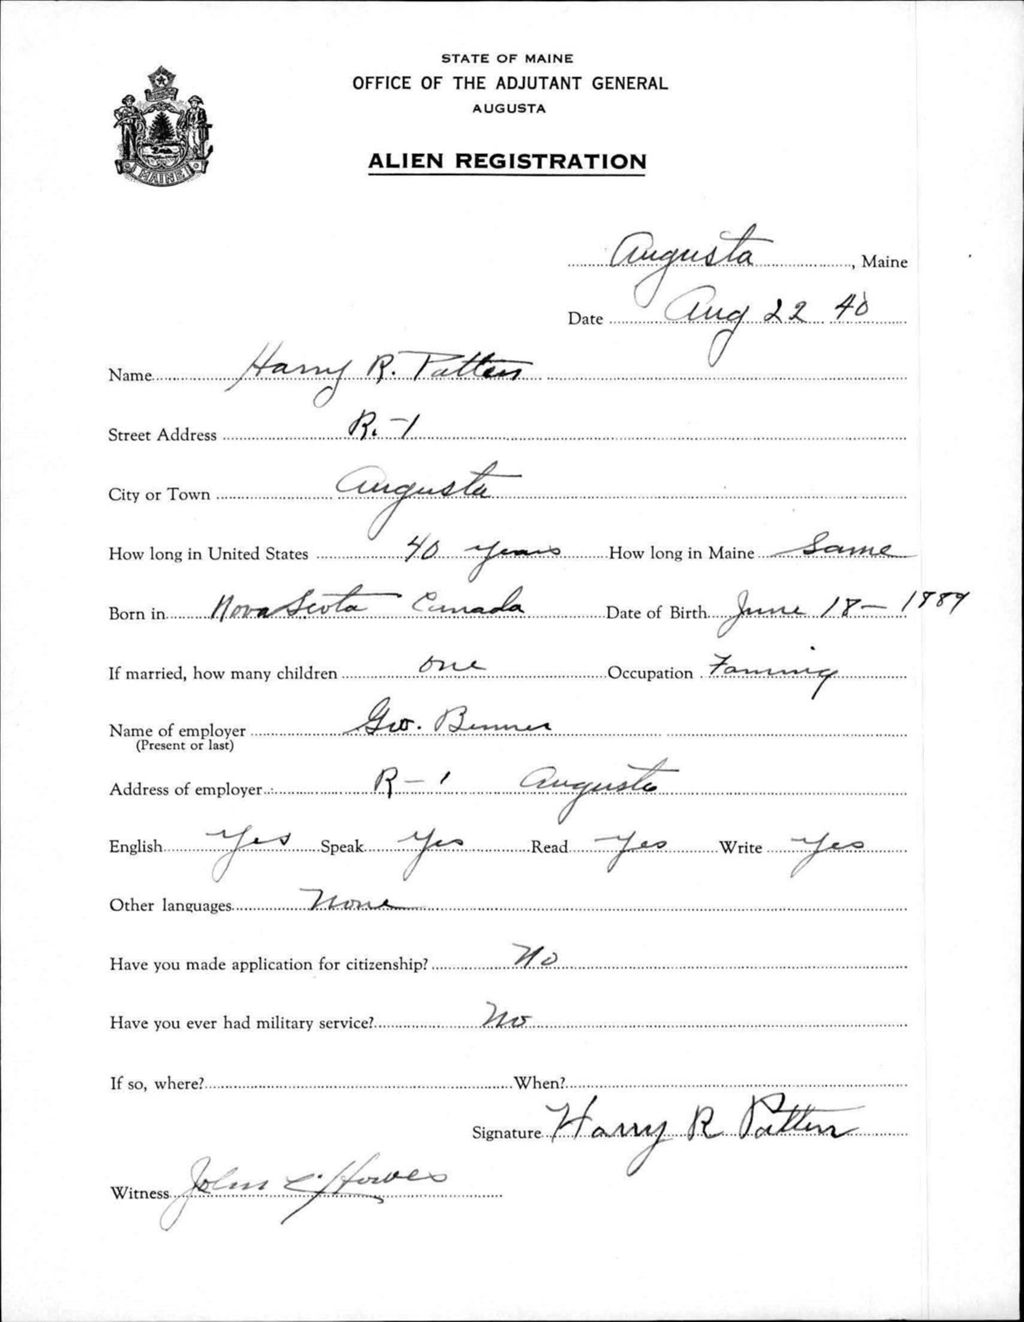 STATE OF MAINE
OFFICE OF THE ADJUTANT GENERAL
AUGUSTA
ALIEN REGISTRATION
MAINE
Augusta, Maine
Date Aug 22 40
Name Harry R. Patten
Street Address R.-1
City or Town Augusta
How long in United States 40 years How long in Maine Same
Born in Nova Scota Canada Date of Birth June 18 - 1889
If married, how many children one Occupation Farming
Name of employer Geo. Benner
(Present or last)
Address of employer R-1 Augusta
English Yes Speak Yes Read Yes Write Yes
Other languages None
Have you made application for citizenship? No
Have you ever had military service? No
If so, where? When?
Signature Harry R Patten
Witness John C Howes